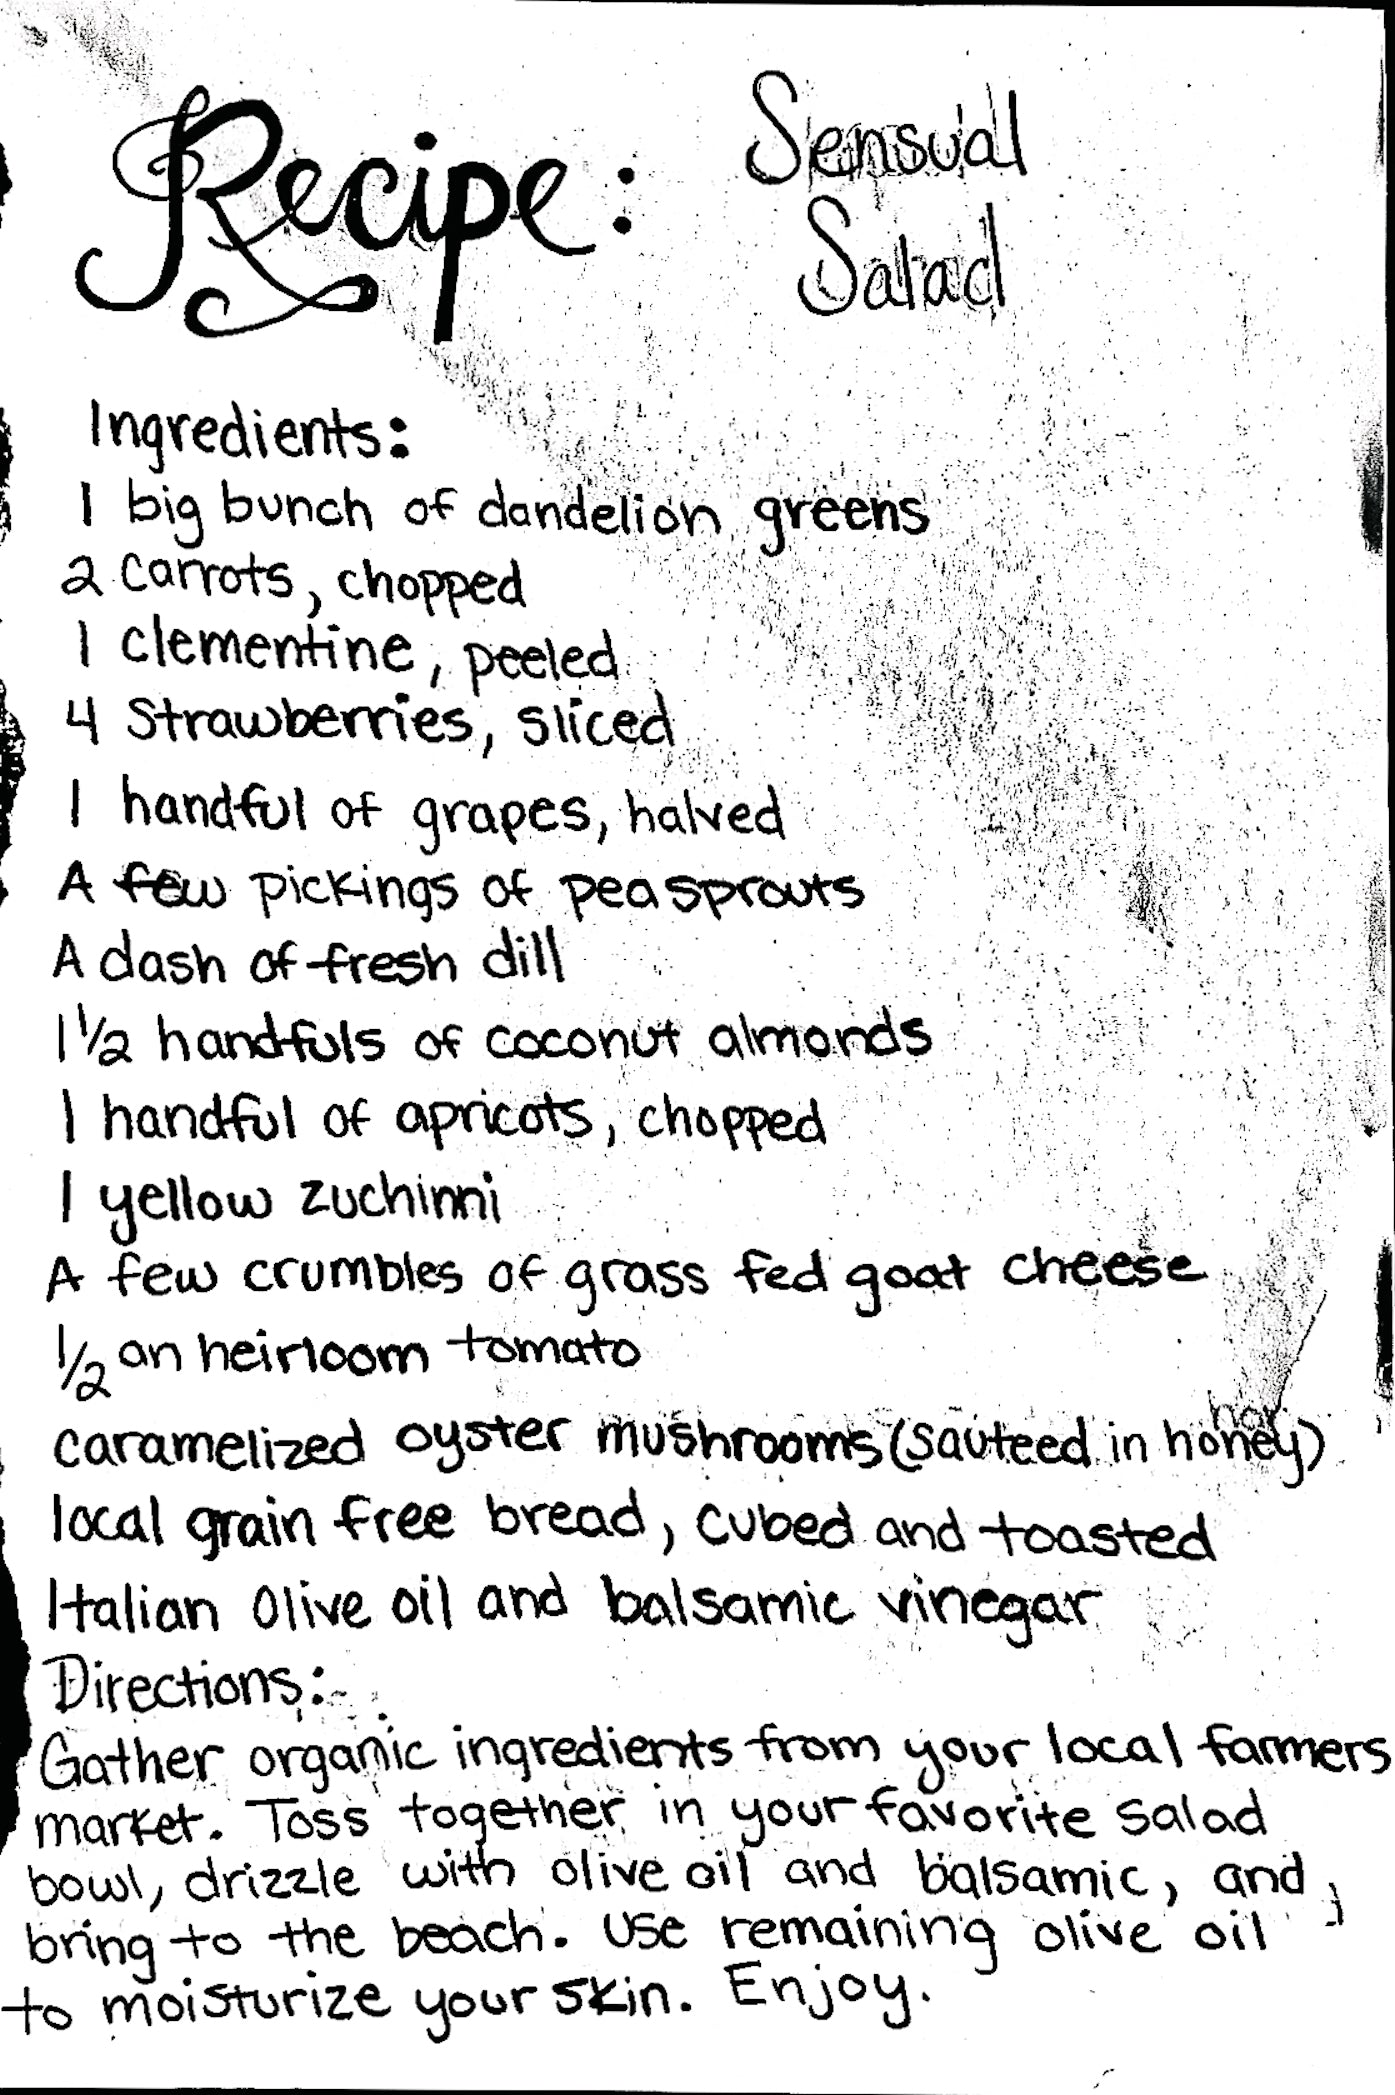 Recipe: Sensual
Salad
Ingredients:
1 big bunch of dandelion greens
2 carrots, chopped
1 clementine, peeled
4 strawberries, sliced
1 handful of grapes, halved
A few pickings of pea sprouts
A dash of fresh dill
1 1/2 handfuls of coconut almonds
1 handful of apricots, chopped
1 yellow zuchinni
A few crumbles of grass fed goat cheese
1/2 an heirloom tomato
caramelized oyster mushrooms (sauteed in honey)
local grain free bread, cubed and toasted
Italian olive oil and balsamic vinegar
Directions:
Gather organic ingredients from your local farmers
market. Toss together in your favorite salad
bowl, drizzle with olive oil and balsamic, and
bring to the beach. Use remaining olive oil
to moisturize your skin. Enjoy.